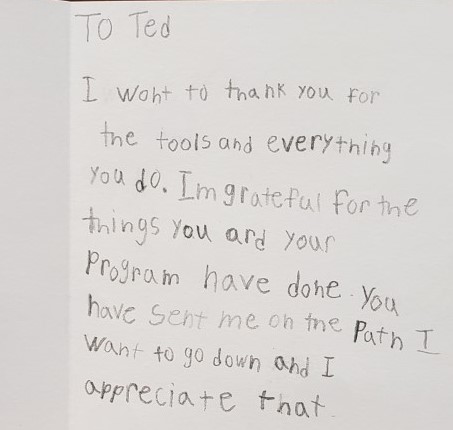 To Ted
I woht to thank you for
the tools and everything
you do. Im grateful for the
things you and your
Program have done. You
have sent me on the Path I
want to go down and I
appreciate that.